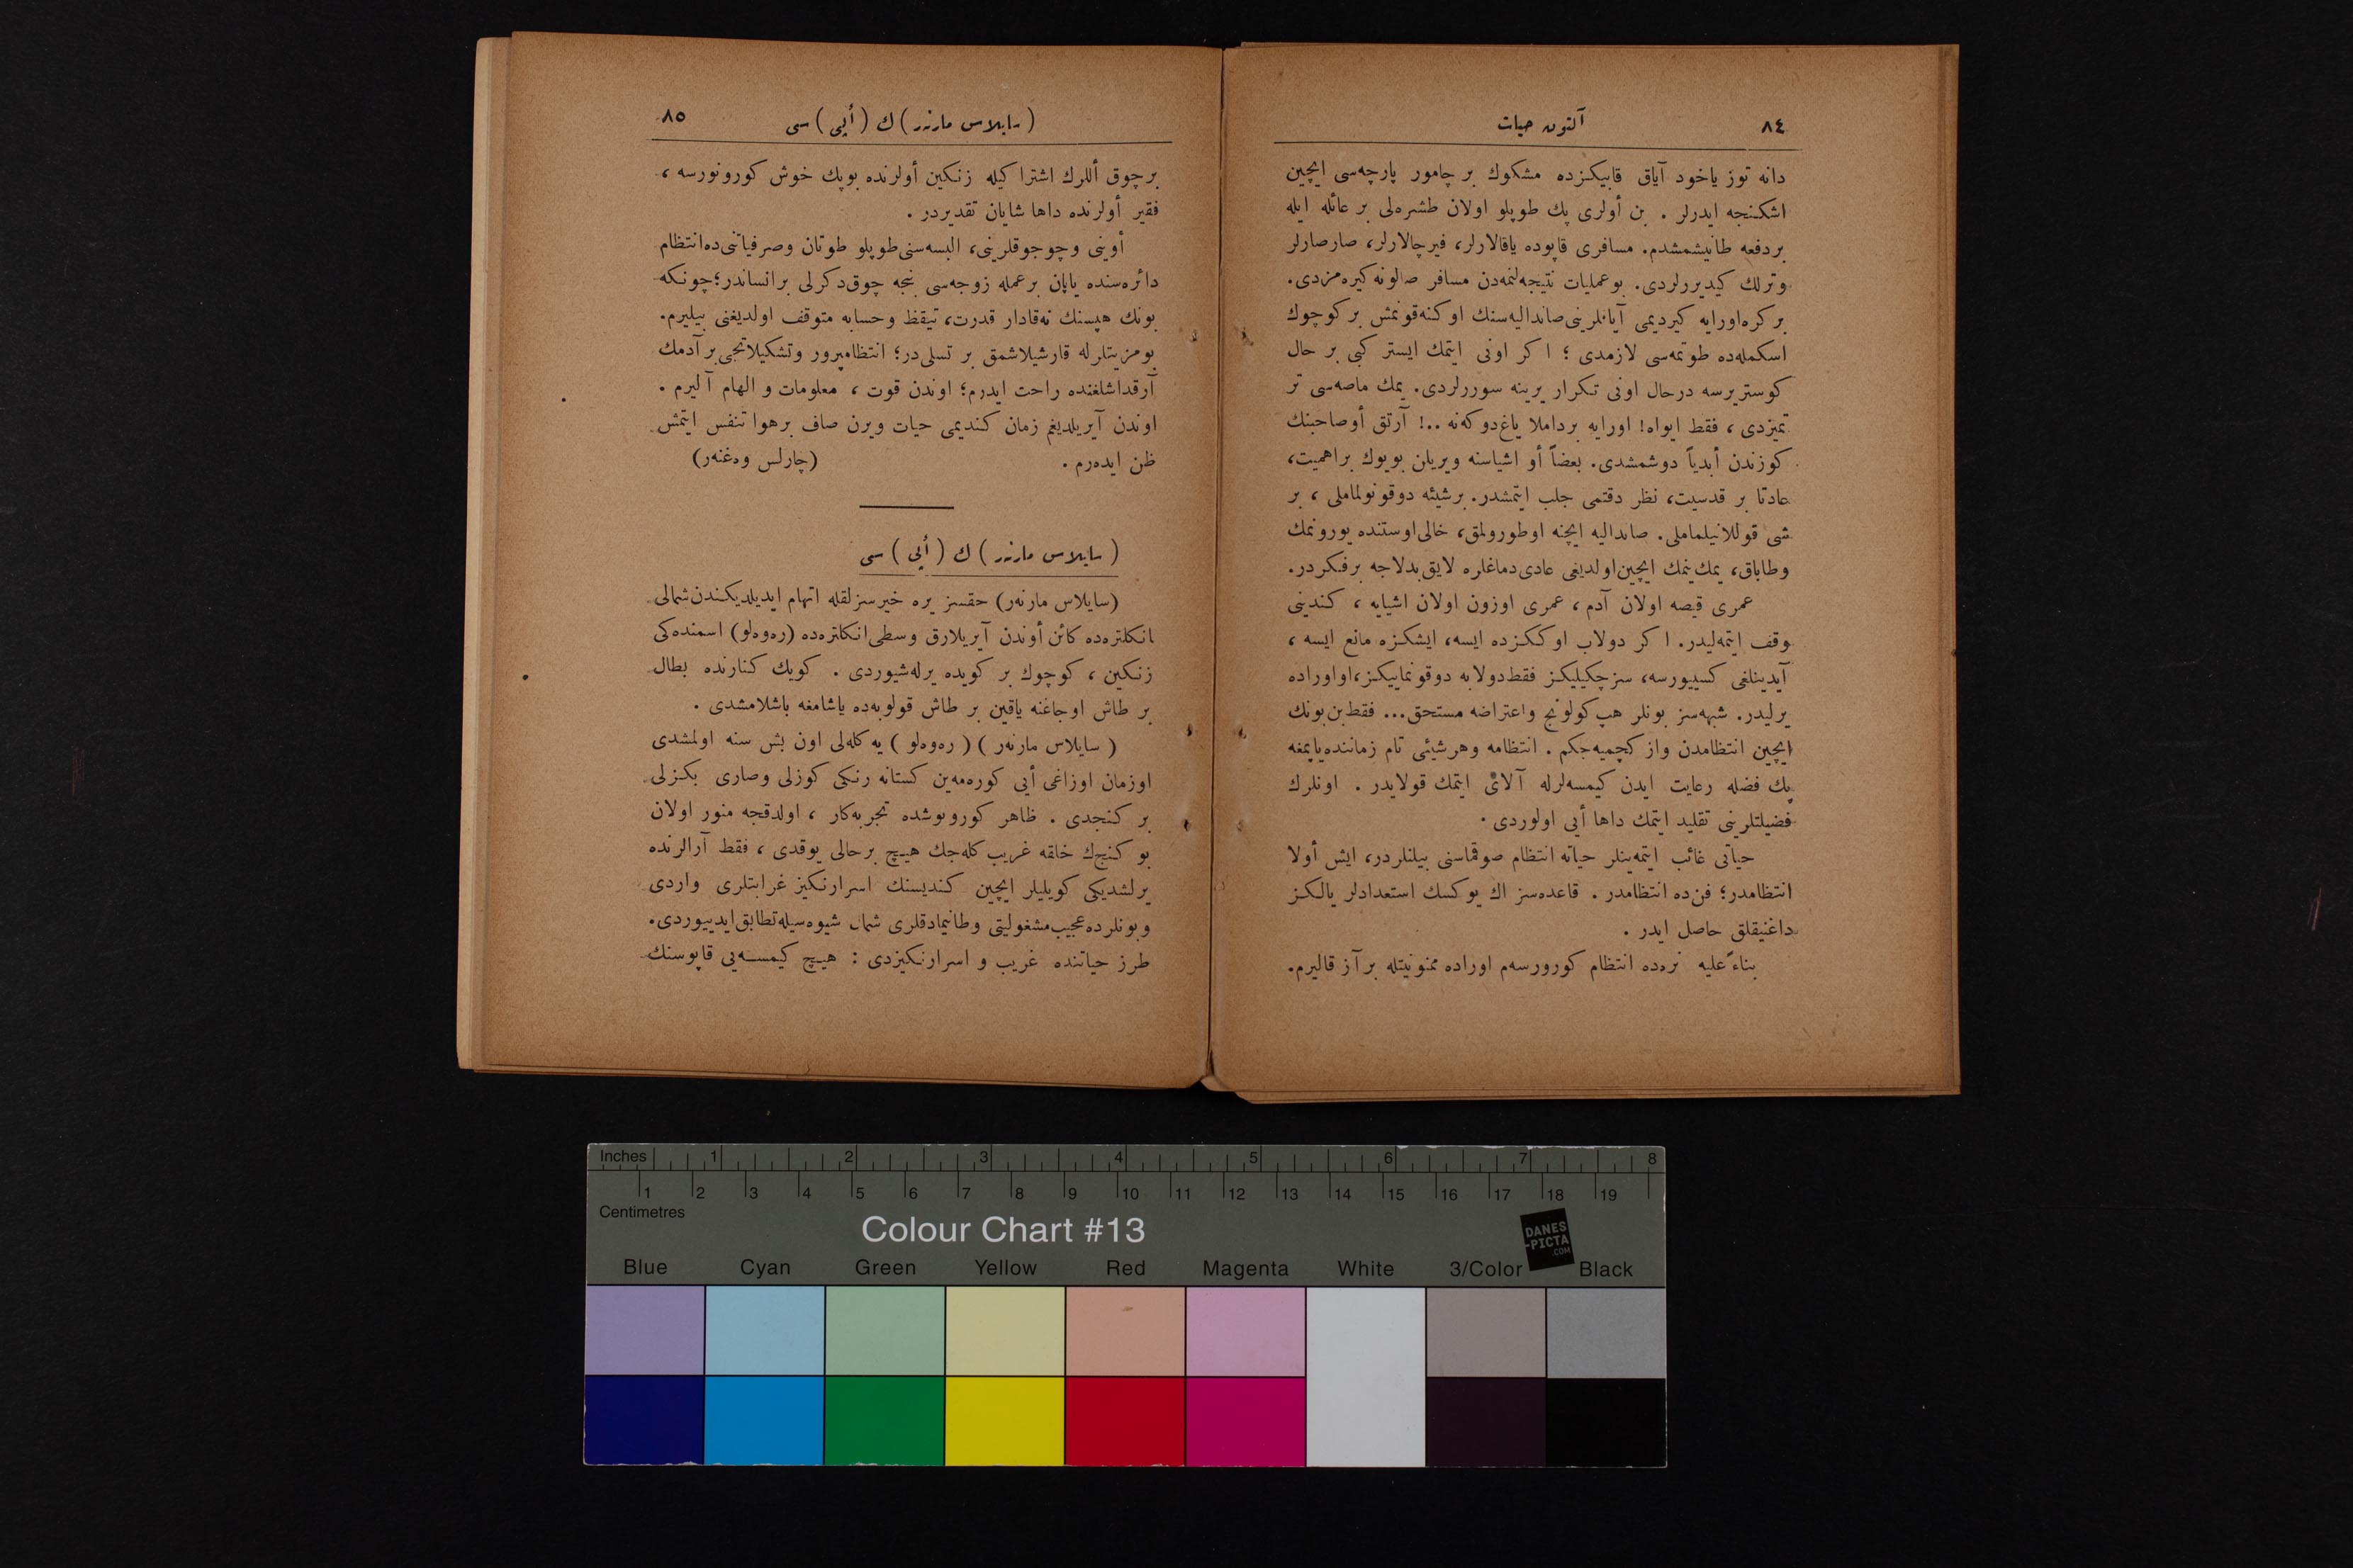 ٨٤
آلتون حیات
دانه توز یاخود آیاق قابیکزده مشکوك بر چامور پارچه‌سی ایچین
اشکنجه ایدرلر . بن أولری پك طوپلو اولان طشره‌لی بر عائله ایله
بردفعه طانیشمشدم. مسافری قاپوده یاقالارلر، فیرچالارلر، صارصارلر
وترلك کیدیررلردی. بوعملیات نتیجه‌لنمه‌دن مسافر صالونه کیره‌مزدی.
برکره اورایه کیردیمی آیاقلرینی صاندالیه‌سنك اوکنه قونمش برکوچوك
اسکمله‌ده طوتمه‌سی لازمدی ؛ اکر اونی ایتمك ایستر کبی بر حال
کوستریرسه درحال اونی تکرار یرینه سوررلردی. یمك ماصه‌سی تر
تمیزدی ، فقط ایواه! اورایه برداملا یاغ دوکه‌نه ..! آرتق أوصاحبنك
کوزندن أبدیاً دوشمشدی. بعضاً أو اشیاسنه ویریلن بویوك براهمیت،
عادتا بر قدسیت، نظر دقتمی جلب ایتمشدر. برشیئه دوقونولماملی ، بر
شی قوللانیلماملی. صاندالیه ایچنه اوطورولمق، خالی اوستنده یورونمك
وطاباق، یمك ینمك ایچین اولدیغی عادی دماغلره لایق بدلاجه برفکردر.
عمری قیصه اولان آدم ، عمری اوزون اولان اشیایه ، کندینی
وقف ایتمه‌لیدر. اکر دولاب اوککزده ایسه، ایشکزه مانع ایسه ،
آیدینلغی کسییورسه، سز چکیلیکز فقط دولابه دوقونمایکز، او اوراده
یرلیدر. شبهه‌سز بونلر هپ کولونج واعتراضه مستحق... فقط بن بونك
ایچین انتظامدن واز کچمیه‌جکم . انتظامه وهرشیئی تام زماننده یاپمغه
پك فضله رعایت ایدن کیمسه‌لرله آلای ایتمك قولایدر . اونلرك
فضیلتلرینی تقلید ایتمك داها أیی اولوردی .
حیاتی غائب ایتمه‌ینلر حیاته انتظام صوقماسنی بیلنلردر، ایش أولا
انتظامدر؛ فن ده انتظامدر . قاعده‌سز اك یوکسك استعدادلر یالکز
داغنیقلق حاصل ایدر .
بناءً علیه نره‌ده انتظام کورورسه‌م اوراده ممنونیتله بر آز قالیرم.
(سایلاس مارنه‌ر) ك (أیی) سی
٨٥
برچوق أللرك اشتراکیله زنکین أولرنده بوپك خوش کورونورسه ،
فقیر أولرنده داها شایان تقدیردر .
أوینی وچوجوقلرینی، البسه‌سنی طوپلو طوتان وصرفیاتنی ده انتظام
دائره‌سنده یاپان برعمله زوجه‌سی بنجه چوق دکرلی برانساندر؛ چونکه
بونك هپسنك نه‌قادار قدرت، تیقظ وحسابه متوقف اولدیغنی بیلیرم.
بومزیتلرله قارشیلاشمق بر تسلی در؛ انتظامپرور وتشکیلاتجی برآدمك
آرقداشلغنده راحت ایدرم؛ اوندن قوت ، معلومات و الهام آلیرم .
اوندن آیریلدیغم زمان کندیمی حیات ویرن صاف برهوا تنفس ایتمش
ظن ایده‌رم . (چارلس وه‌غنه‌ر)
(سایلاس مارنه‌ر) ك (أیی) سی
(سایلاس مارنه‌ر) حقسز یره خیرسزلقله اتهام ایدیلدیکندن شمالی
انکلتره‌ده کائن أوندن آیریلارق وسطی انکلتره‌ده (ره‌وه‌لو) اسمنده‌کی
زنکین ، کوچوك بر کویده یرله‌شیوردی . کویك کنارنده بطال
بر طاش اوجاغنه یاقین بر طاش قولوبه‌ده یاشامغه باشلامشدی .
(سایلاس مارنه‌ر) (ره‌وه‌لو) یه کله‌لی اون بش سنه اولمشدی
اوزمان اوزاغی أیی کوره‌مه‌ین کستانه رنکی کوزلی وصاری بکزلی
بر کنجدی . ظاهر کورونوشده تجربه‌کار ، اولدقجه منور اولان
بو کنجك خلقه غریب کله‌جك هیچ برحالی یوقدی ، فقط آرالرنده
یرلشدیکی کویلیلر ایچین کندیسنك اسرارنکیز غرابتلری واردی
وبونلرده عجیب مشغولیتی وطانیمادقلری شمال شیوه‌سیله تطابق ایدییوردی.
طرز حیاتنده غریب و اسرارنکیزدی : هیچ کیمسه‌یی قاپوسنك
Inches 1 2 3 4 5 6 7 8
1 2 3 4 5 6 7 8 9 10 11 12 13 14 15 16 17 18 19
Centimetres
Colour Chart #13
DANES
-PICTA
.COM
Blue Cyan Green Yellow Red Magenta White 3/Color Black